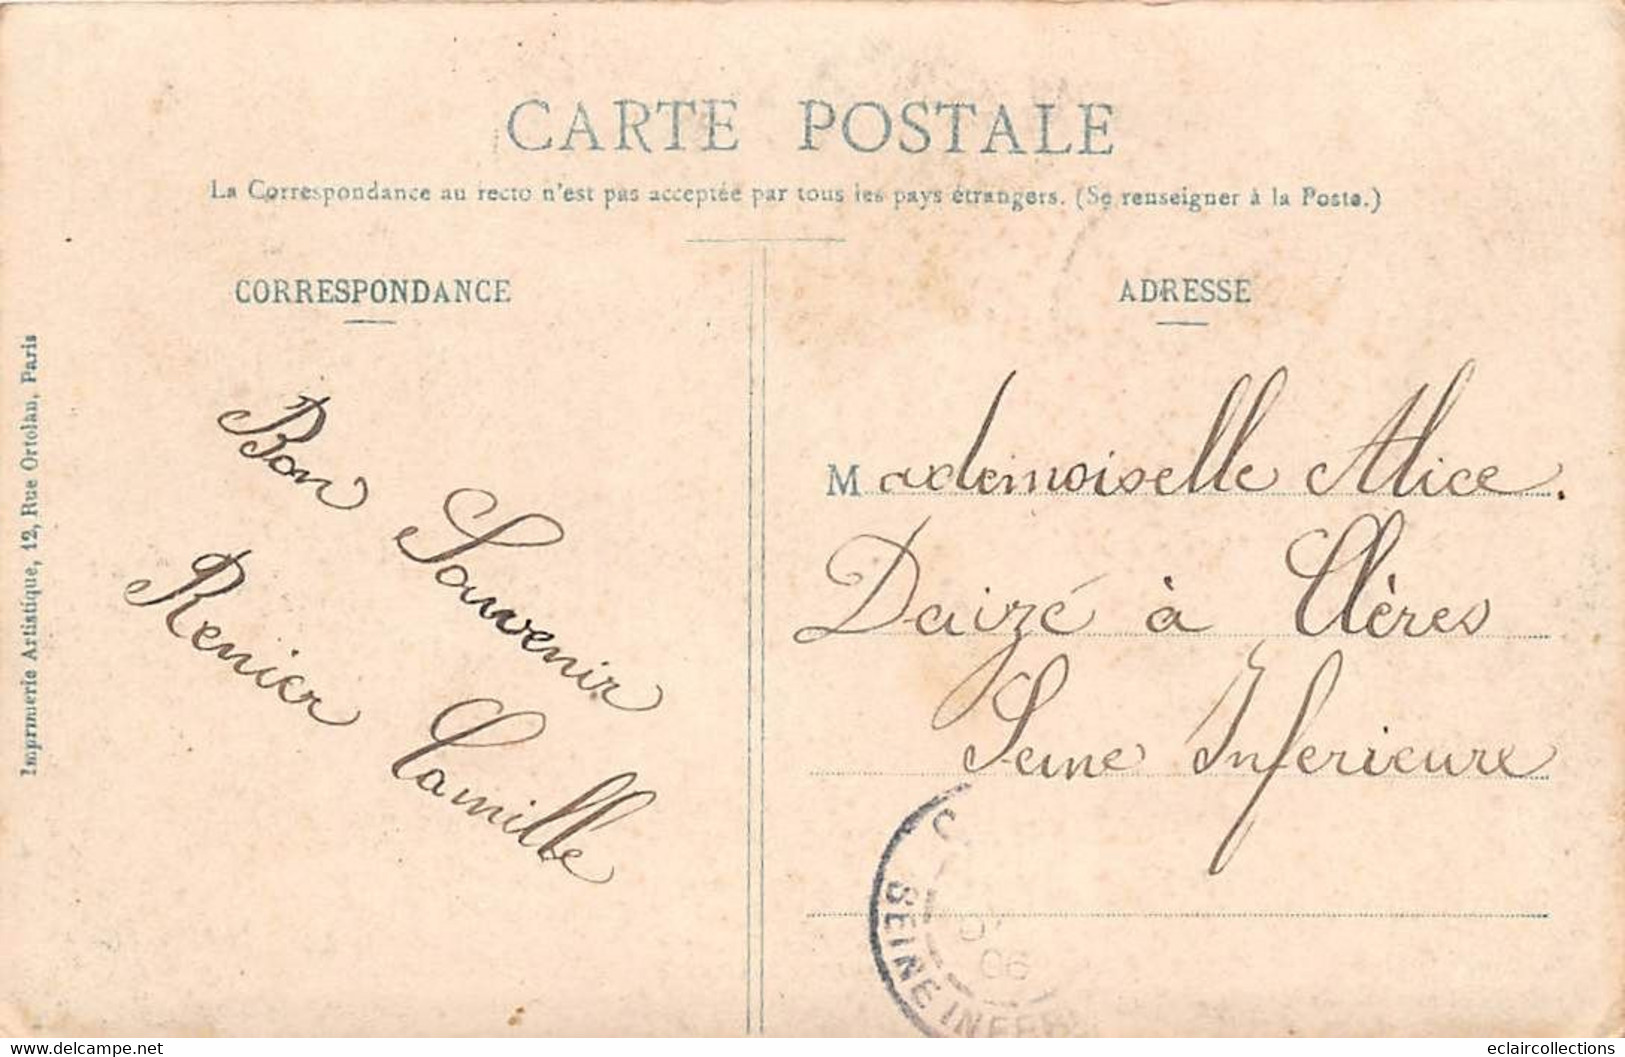 CARTE POSTALE
La Correspondance au recto n'est pas acceptée par tous les pays étrangers. (Se renseigner à la Poste.)
CORRESPONDANCE
Bon Souvenir
Renier Camille
ADRESSE
Mademoiselle Alice.
Daizé à Clères
Seine Inferieure
SEINE INFER
06
Imprimerie Artistique, 12, Rue Ortolan, Paris
https://www.delcampe.net
eclaircollections